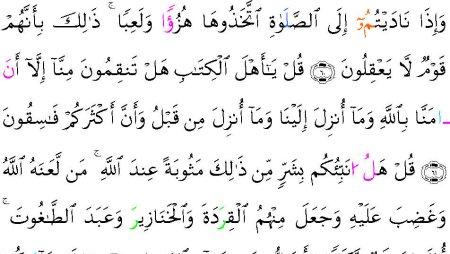 وَإِذَا نَادَيْتُمُۥٓ إِلَى ٱلصَّلَوٰةِ ٱتَّخَذُوهَا هُزُؤًا وَلَعِبًا ۚ ذَٰلِكَ بِأَنَّهُمْ
قَوْمٌ لَّا يَعْقِلُونَ ٦٠ قُلْ يَٰٓأَهْلَ ٱلْكِتَٰبِ هَلْ تَنقِمُونَ مِنَّآ إِلَّآ أَنَ
ـامَنَّا بِٱللَّهِ وَمَآ أُنزِلَ إِلَيْنَا وَمَآ أُنزِلَ مِن قَبْلُ وَأَنَّ أَكْثَرَكُمْ فَٰسِقُونَ
٦١ قُلْ هَلُ انَبِّئُكُم بِشَرٍّ مِّن ذَٰلِكَ مَثُوبَةً عِندَ ٱللَّهِ ۚ مَن لَّعَنَهُ ٱللَّهُ
وَغَضِبَ عَلَيْهِ وَجَعَلَ مِنْهُمُ ٱلْقِرَدَةَ وَٱلْخَنَازِيرَ وَعَبَدَ ٱلطَّٰغُوتَ ۚ